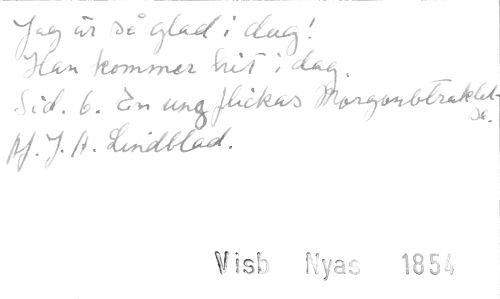 Jag är så glad i dag!
Han kommer hit i dag.
Sid. 6. En ung flickas Morgonbetraktel-
se.
Af. J. A. Lindblad.
Visb Nyas 1854